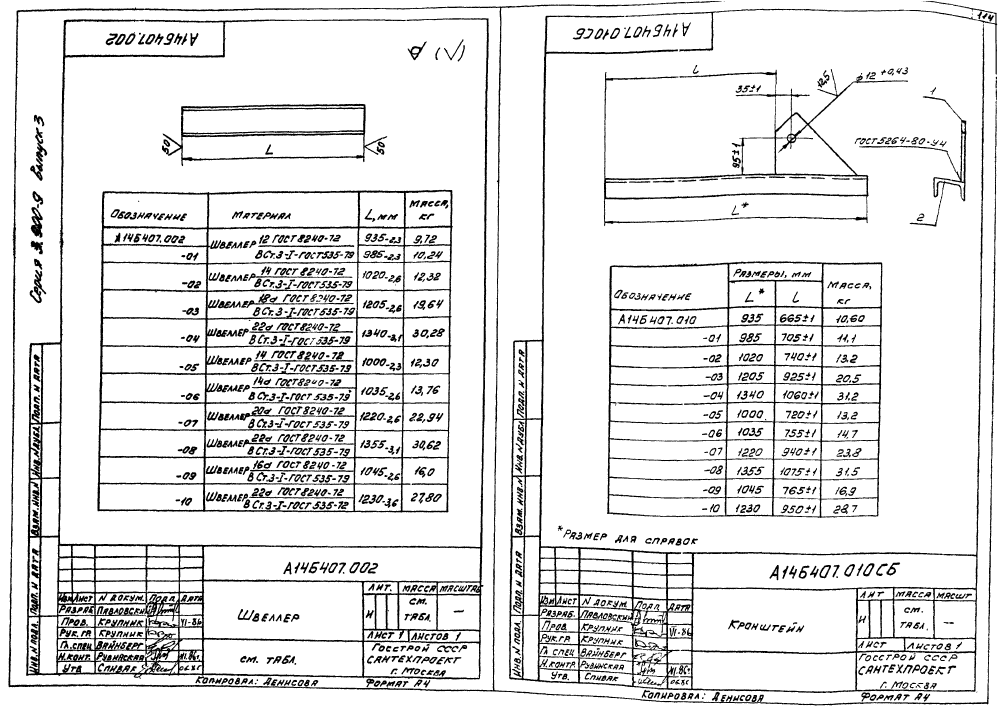 114
Серия 3.900-9 Выпуск 3
А14Б407.002
50
L
50
Обозначение Материал L, мм Масса, кг
А14Б407.002 Швеллер 12 ГОСТ 8240-72 935-2,3 9,72
-01 ВСт.3-I-ГОСТ 535-79 985-2,3 10,24
-02 Швеллер 14 ГОСТ 8240-72 1020-2,6 12,32
ВСт.3-I-ГОСТ 535-79
-03 Швеллер 18а ГОСТ 8240-72 1205-2,6 19,64
ВСт.3-I-ГОСТ 535-79
-04 Швеллер 22а ГОСТ 8240-72 1340-3,1 30,28
ВСт.3-I-ГОСТ 535-79
-05 Швеллер 14 ГОСТ 8240-72 1000-2,3 12,30
ВСт.3-I-ГОСТ 535-79
-06 Швеллер 14а ГОСТ 8240-72 1035-2,6 13,76
ВСт.3-I-ГОСТ 535-79
-07 Швеллер 20а ГОСТ 8240-72 1220-2,6 22,94
ВСт.3-I-ГОСТ 535-79
-08 Швеллер 22а ГОСТ 8240-72 1355-3,1 30,62
ВСт.3-I-ГОСТ 535-79
-09 Швеллер 16а ГОСТ 8240-72 1045-2,6 16,0
ВСт.3-I-ГОСТ 535-79
-10 Швеллер 22а ГОСТ 8240-72 1230-3,6 27,80
ВСт.3-I-ГОСТ 535-72
Инв.N подл. Подп. и дата Взам. инв.N Инв.N дубл. Подп. и дата
А14Б407.002
Изм Лист N докум. Подп. Дата
Разраб. Павловский
Пров. Крупник VI-86
Рук.гр Крупник
Гл.спец Вайнберг
Н.контр. Рубинская
Утв Спивак
Швеллер
см. табл.
Лит. Масса Масштаб
И см. табл. —
Лист 1 Листов 1
Госстрой СССР
САНТЕХПРОЕКТ
г. Москва
Копировал: Денисова Формат А4
А14Б407.010СБ
L
35±1
12,5
ϕ12 +0,43
1
ГОСТ 5264-80-У4
95±1
2
L*
Обозначение Размеры, мм Масса, кг
L* l
А14Б407.010 935 665±1 10,60
-01 985 705±1 11,1
-02 1020 740±1 13,2
-03 1205 925±1 20,5
-04 1340 1060±1 31,2
-05 1000 720±1 13,2
-06 1035 755±1 14,7
-07 1220 940±1 23,8
-08 1355 1075±1 31,5
-09 1045 765±1 16,9
-10 1230 950±1 28,7
*Размер для справок
Инв.N подл. Подп. и дата Взам. инв.N Инв.N дубл. Подп. и дата
А14Б407.010СБ
Изм Лист N докум. Подп. Дата
Разраб. Павловский
Пров. Крупник VI-86
Рук.гр. Крупник
Гл спец Вайнберг
Н.контр. Рубинская
Утв. Спивак
Кронштейн
Лит Масса Масшт
И см. табл. —
Лист Листов 1
Госстрой СССР
САНТЕХПРОЕКТ
г. Москва
Копировал: Денисова Формат А4